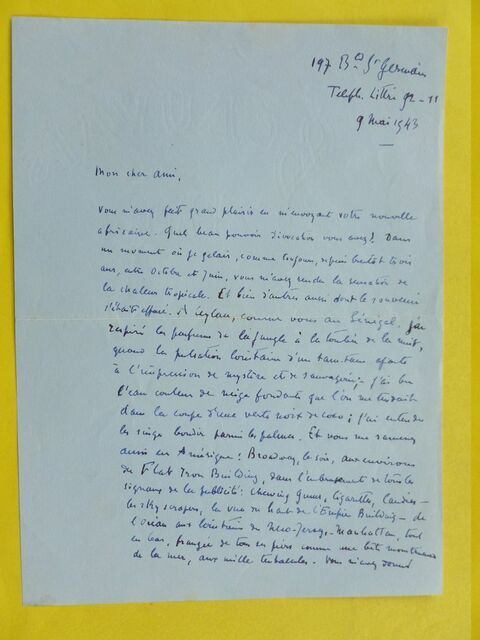 197 Bd St Germain
Téléph. Littré 92-11
9 Mai 1943
Mon cher ami,
Vous m'avez fait grand plaisir en m'envoyant votre nouvelle
africaine. Quel beau pouvoir d'évocation vous avez! Dans
un moment où je gelais, comme toujours, depuis bientôt trois
ans, entre Octobre et Juin, vous m'avez rendu la sensation de
la chaleur tropicale. Et bien d'autres aussi dont le souvenir
s'était effacé. A Ceylan, comme vous au Sénégal, j'ai
respiré les parfums de la jungle à la tombée de la nuit,
quand la pulsation lointaine d'un tam-tam ajoute
à l'impression de mystère et de sauvagerie; j'ai bu
l'eau couleur de neige fondante que l'on me tendait
dans la coupe d'une verte noix de coco; j'ai entendu
les singes bondir parmi les palmes. Et vous me ramenez
aussi en Amérique: Broadway, le soir, aux environs
du Flat Iron Building, dans l'embrasement de tous les
signaux de la publicité: Chewing Gums, Cigarettes, Candies –
les sky scrapers, la vue du haut de l'Empire Building – de
l'Océan aux lointains de New-Jersey, Manhattan, tout
en bas, frangée de tous ses piers comme une bête monstrueuse
de la mer, aux mille tentacules. Vous m'avez donné